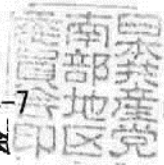 日本共産党
南部地区
委員会印
-7